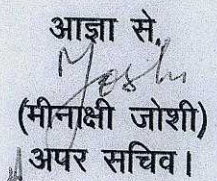 आज्ञा से,
(मीनाक्षी जोशी)
अपर सचिव।